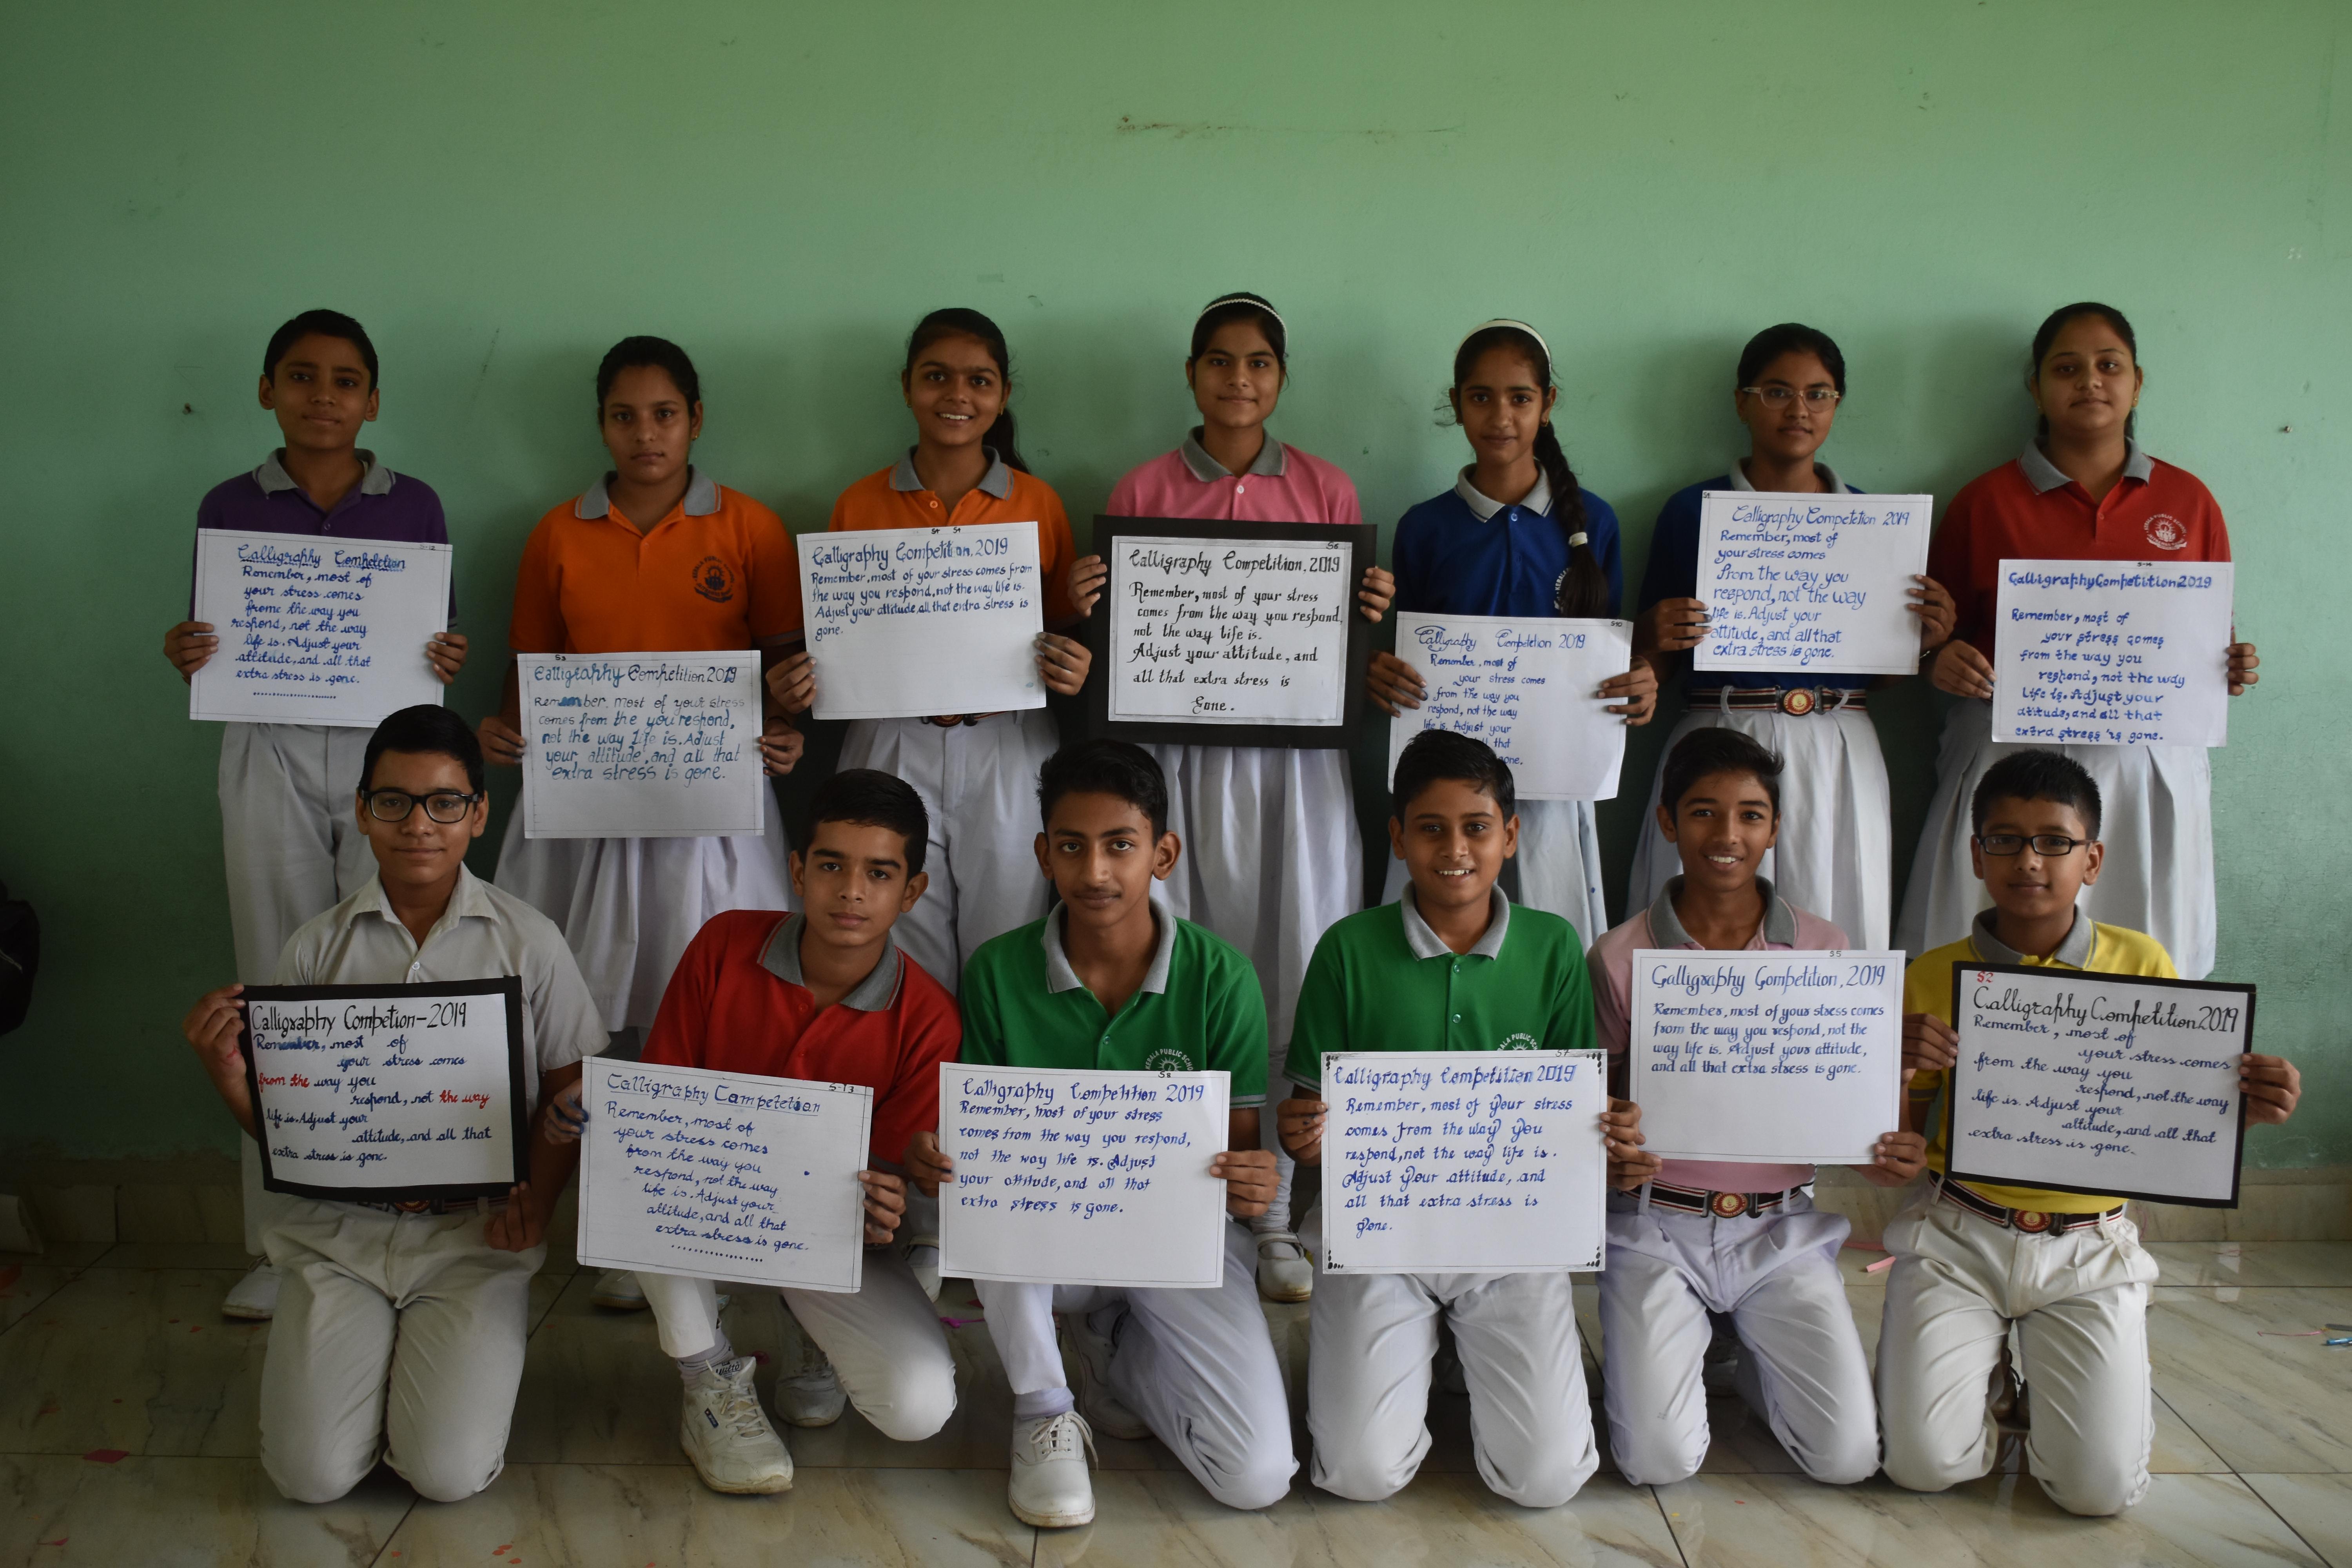 S-12
Calligraphy Competetion
Remember, most of
your stress comes
frome the way you
respond, not the way
life is. Adjust your
attitude, and all that
extra stress is gone.
S3
Calligraphy Competition 2019
Remember, most of your stress
comes from the you respond,
not the way life is. Adjust
your attitude, and all that
extra stress is gone.
S4 S4
Calligraphy Competition, 2019
Remember, most of your stress comes from
the way you respond, not the way life is.
Adjust your attitude, all that extra stress is
gone.
S6
Calligraphy Competition. 2019
Remember, most of your stress
comes from the way you respond,
not the way life is.
Adjust your attitude, and
all that extra stress is
Gone.
S10
Calligraphy Competetion 2019
Remember, most of
your stress comes
from the way you
respond, not the way
life is. Adjust your
all that
gone.
S9
Calligraphy Competetion 2019
Remember, most of
your stress comes
from the way you
respond, not the way
life is. Adjust your
attitude, and all that
extra stress is gone.
S-14
Calligraphy Competition 2019
Remember, most of
your stress comes
from the way you
respond, not the way
life is. Adjust your
attitude, and all that
extra stress is gone.
Calligraphy Competion-2019
Remember, most of
your stress comes
from the way you
respond, not the way
life is. Adjust your
attitude, and all that
extra stress is gone.
S-13
Calligraphy Competetion
Remember, most of
your stress comes
from the way you
respond, not the way
life is. Adjust your
attitude, and all that
extra stress is gone.
S8
Calligraphy Competition 2019
Remember, most of your stress
comes from the way you respond,
not the way life is. Adjust
your attitude, and all that
extra stress is gone.
S7
Calligraphy Competition 2019
Remember, most of your stress
comes from the way you
respond, not the way life is.
Adjust your attitude, and
all that extra stress is
gone.
S5
Calligraphy Competition, 2019
Remember, most of your stress comes
from the way you respond, not the
way life is. Adjust your attitude,
and all that extra stress is gone.
S2
Calligraphy Competition 2019
Remember, most of
your stress comes
from the way you
respond, not the way
life is. Adjust your
attitude, and all that
extra stress is gone.